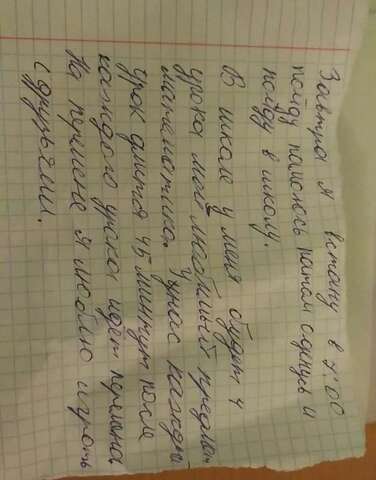 Завтра я встану в 7:00
пойду помоюсь патом оденусь и
пойду в школу.
В школе у меня будет 4
урока мой любимый предмет
математика. У нас каждый
урок длится 45 минут после
каждого урока идет перемена
На перемене я люблю играть
с друзьями.